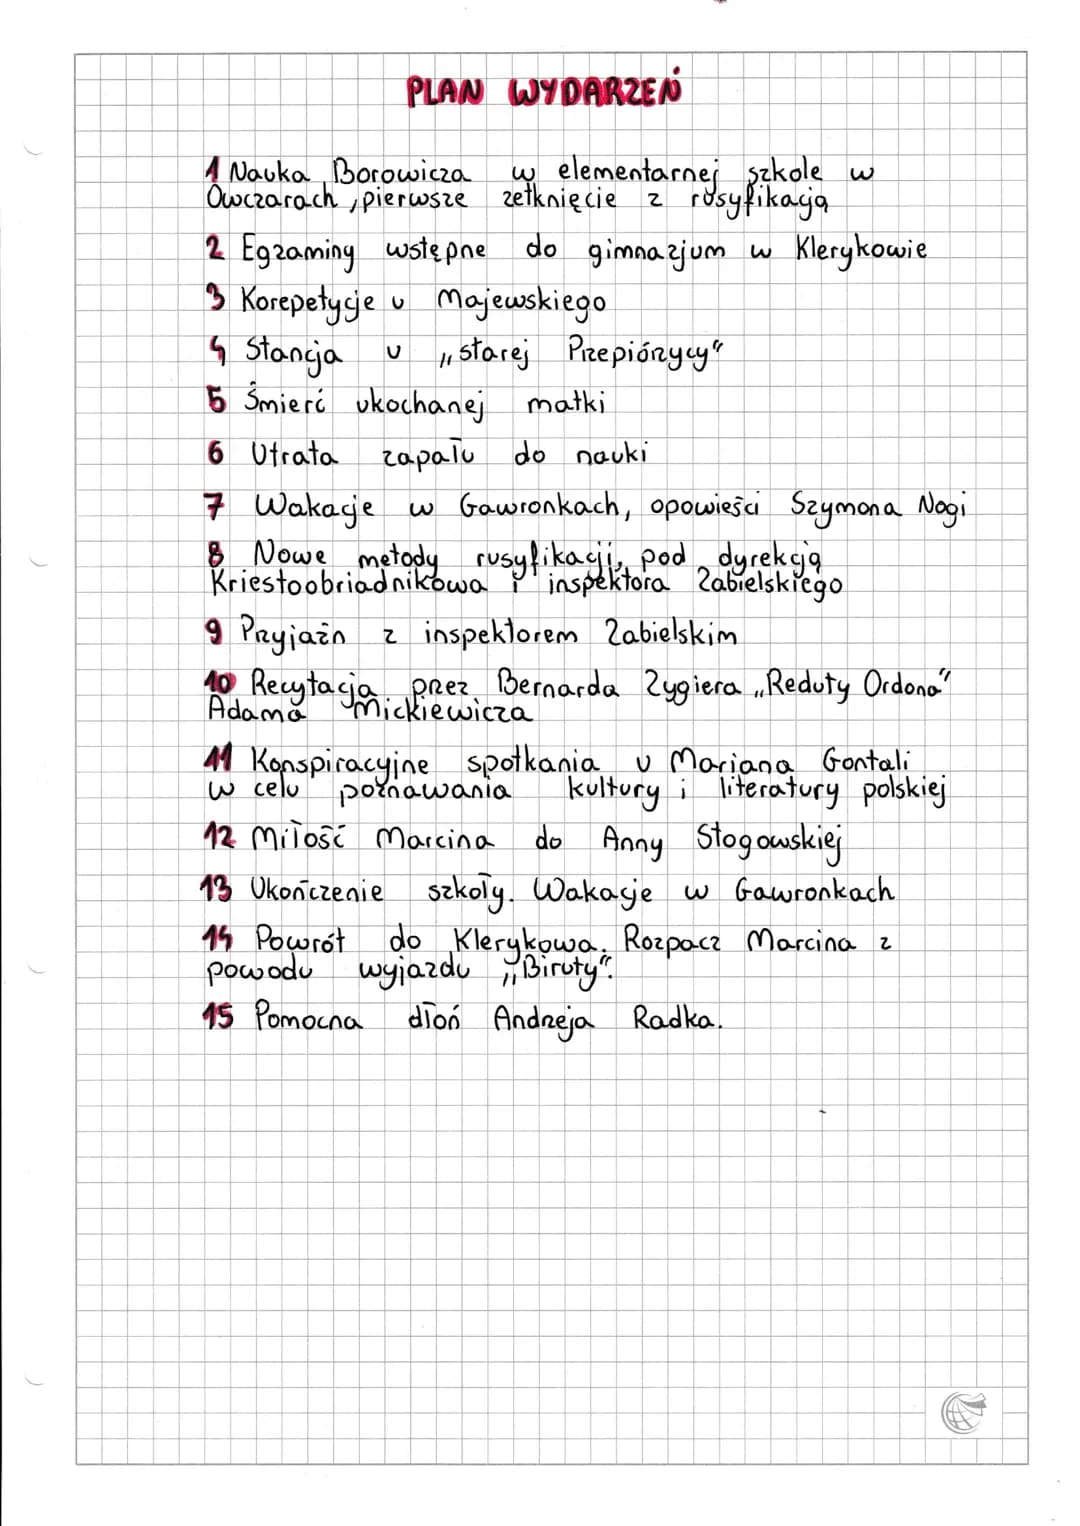 PLAN WYDARZEŃ
1 Nauka Borowicza w elementarnej szkole w
Owczarach, pierwsze zetknięcie z rusyfikacją
2 Egzaminy wstępne do gimnazjum w Klerykowie
3 Korepetycje u Majewskiego
4 Stancja u „starej Przepiórzycy"
5 Śmierć ukochanej matki
6 Utrata zapału do nauki
7 Wakacje w Gawronkach, opowieści Szymona Nogi
8 Nowe metody rusyfikacji, pod dyrekcją
Kriestoobriadnikowa i inspektora Zabielskiego
9 Przyjaźn z inspektorem Zabielskim
10 Recytacja prez Bernarda Zygiera „Reduty Ordona"
Adama Mickiewicza
11 Konspiracyjne spotkania u Mariana Gontali
w celu poznawania kultury i literatury polskiej
12 Miłość Marcina do Anny Stogowskiej
13 Ukończenie szkoły. Wakacje w Gawronkach
14 Powrót do Klerykowa. Rozpacz Marcina z
powodu wyjazdu „Biruty".
15 Pomocna dłoń Andrzeja Radka.